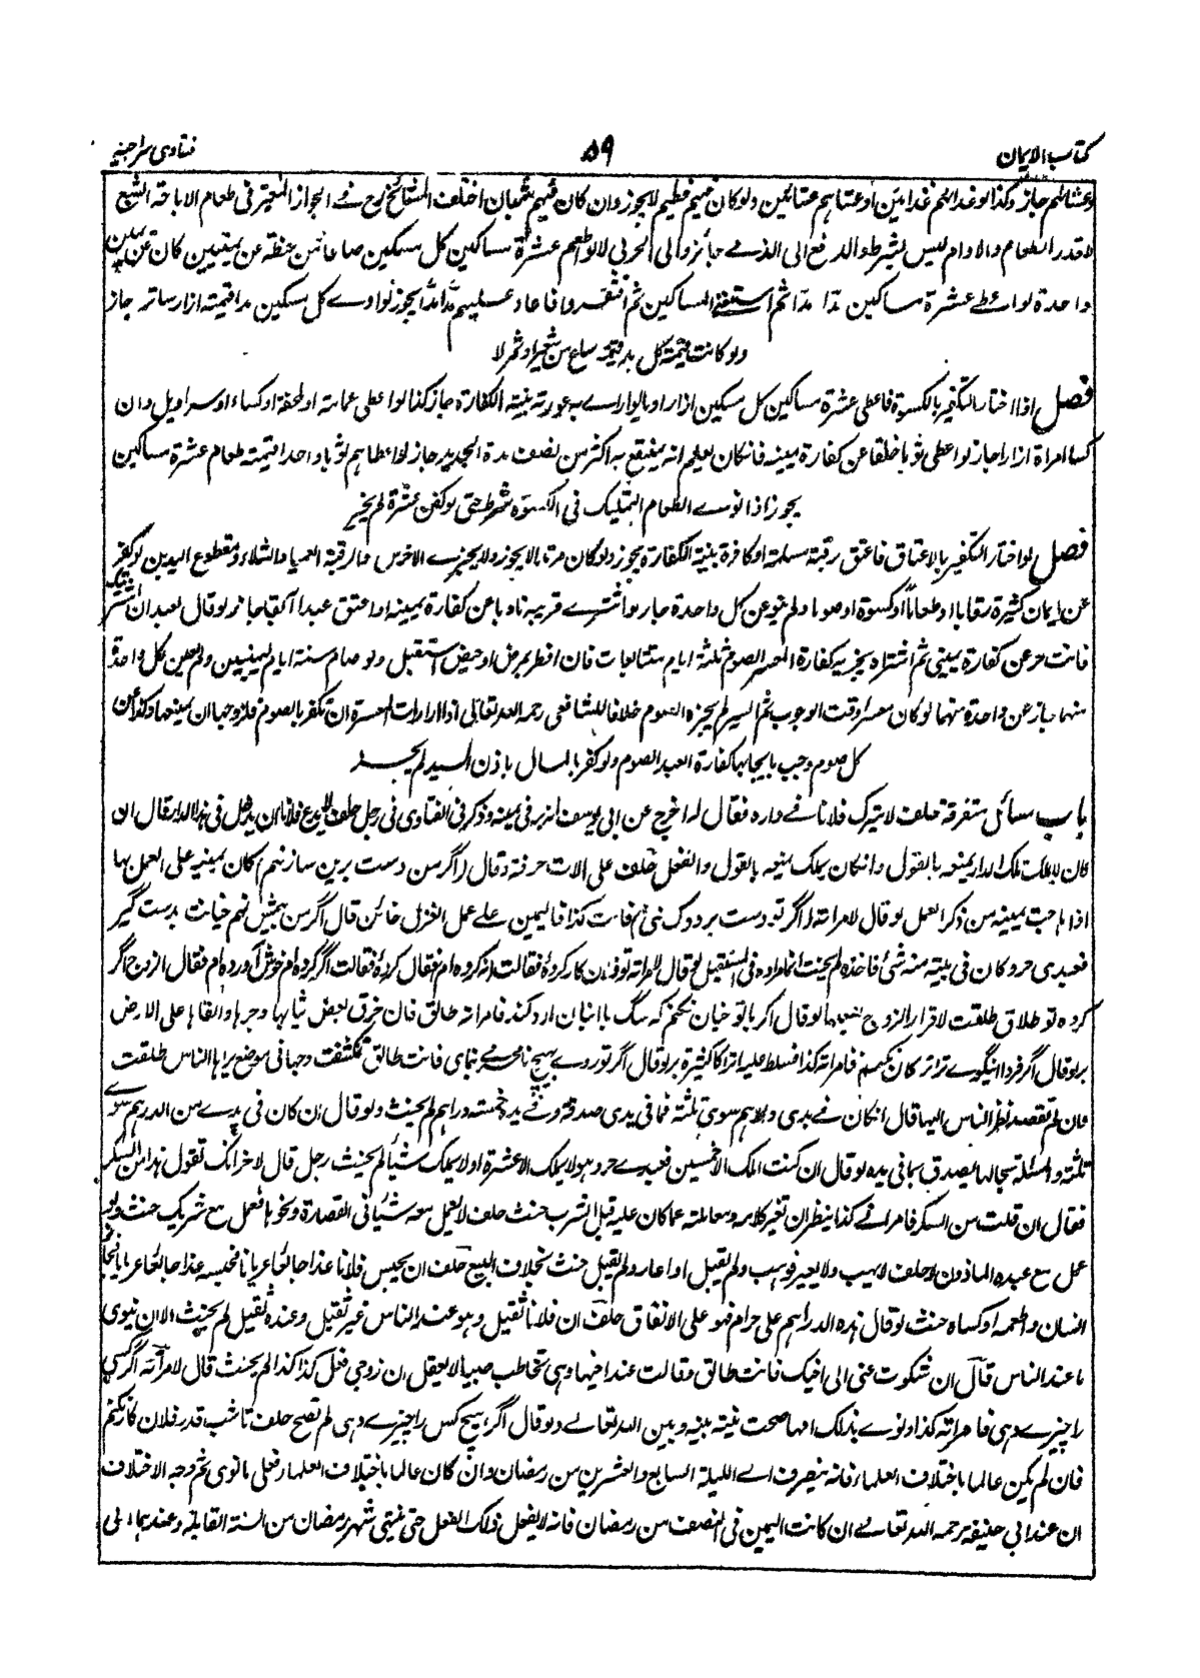 كتاب الايمان
٥٩
فتاوى سراجيه
وعشاهم جاز وكذا لو غداهم غدائين او عشاهم عشائين ولو كان فيهم فطيم لا يجوز وان كان فيهم شبعان اختلف المشائخ رح في الجواز المعتبر فى طعام الاباحة الشبع
لا قدر الطعام والادام ليس بشرط والدفع الى الذمي جائز والى الحربي لا لو اطعم عشرة مساكين كل مسكين صاعا من حنطة عن يمينين كان عن يمين
واحدة لو اعطى عشرة مساكين مدا مدا ثم استغنى المساكين ثم افتقروا فاعاد عليهم مدا مدا يجوز لو ادى كل مسكين مدا قيمته ازار ساتر جاز
ولو كانت قيمة كل مد قيمة صاع من شعير او تمر لا
فصل اذا اختار التكفير بالكسوة فاعطى عشرة مساكين كل مسكين ازارا وما يوارى به عورته بنية الكفارة جاز كذا لو اعطى عمامة او ملحفة او كساء او سراويل وان
كسا امراة ازارا جاز لو اعطى ثوبا خلقا عن كفارة يمينه فان كان يعلم انه ينتفع به اكثر من نصف مدة الجديد جاز لو اعطاهم ثوبا واحدا قيمته طعام عشرة مساكين
يجوز اذا نوى الطعام التمليك فى الكسوة شرط حتى لو كفن عشرة لم يجز
فصل لو اختار التكفير بالاعتاق فاعتق رقبة مسلمة او كافرة بنية الكفارة يجوز ولو كان مرتدا لا يجوز ولا يجزي الاخرس والرقبة العمياء والشلاء ومقطوع اليدين لو كفر
عن ايمان كثيرة رقابا او طعاما او كسوة او صوما ولم ينو عن كل واحدة جاز لو اشترى قريبه ناويا عن كفارة يمينه او اعتق عبدا آبقا جاز لو قال لعبد ان اشتريتك
فانت حر عن كفارة يميني ثم اشتراه يجزيه كفارة المعسر الصوم ثلثة ايام متتابعات فان افطر بمرض او حيض استقبل ولو صام ستة ايام ليمينين ولم يعين كل واحدة
منهما جاز عن واحدة منهما لو كان معسرا وقت الوجوب ثم ايسر لم يجزه الصوم خلافا للشافعى رحمه الله تعالى اذا ارادت المعسرة ان تكفر بالصوم فلزوجها ان يمنعها وكذا عن
كل صوم وجب بايجابها كفارة العبد الصوم ولو كفر بالمال باذن السيد لم يجز
باب مسائل متفرقة حلف لا يترك فلانا فى داره فقال له اخرج عن ابى يوسف انه بر فى يمينه وذكر فى الفتاوى فى رجل حلف لا يدع فلانا ان يدخل فى هذا الدار قال ان
كان لا يملك تلك الدار يمنعه بالقول وان كان يملك يمنعه بالقول والفعل حلف على الات حرفة وقال (اگر من دست برين ساز نهم) كان يمينه على العمل بها
اذا صحت يمينه من ذكر العمل لو قال لامراته اگر تو دست بر دوك نهى فانت كذا فاليمين على عمل الغزل خائن قال اگر من بيش نهم خيانت بدست گير
فعبدى حر وكان فى بيته منه شئ فاخذه لم يحنث انما مراده فى المستقبل لو قال لامراته تو فلان كار كردۀ فقالت نه كرده ام فقال كردۀ فقالت اگر كرده ام خوش آورده ام فقال الزوج اگر
كرده تو طلاق طلقت لاقرار الزوج بفعلها لو قال اگر با تو چنان نكنم كه سگ با انبان ارد كند فامراته طالق فان خرق بعض ثيابها وجرها والقاها على الارض
بر لو قال اگر فردا نيكوى ترا تركان نكنم فامراته كذا فسلط عليها اتراكا كثيرة بر لو قال اگر تو روى بهيچ نامحرمى نماى فانت طالق تكشفت وجهها فى موضع يراها الناس طلقت
فان لم تقصد نظر الناس اليها قال ان كان في يدى دراهم سوى ثلثة فما فى يدى صدقة وفي يده خمسة دراهم لم يحنث ولو قال ان كان فى يدي من الدراهم سوى
ثلثة والمسئلة بحالها يصدق بما فى يده لو قال ان كنت املك الا خمسين فعبدي حر وهو لا يملك الا عشرة او لا يملك شيئا لم يحنث رجل قال لاخر انك تقول هذا من السكر
فقال ان قلت من السكر فامراتي كذا ينظر ان تغير كلامه ومعاملته عما كان عليه قبل الشرب حنث حلف لا يعمل معه شيئا فى القصارة ونحوها فعمل مع شريك حنث ولو
عمل مع عبده الماذون لا حلف لا يهب ولا يعير فوهب ولم يقبل او اعار ولم يقبل حنث بخلاف البيع حلف ان يحبس فلانا غدا جائعا عريانا فحبسه غدا جائعا عريانا فجاء
انسان واطعمه او كساه حنث لو قال هذه الدراهم على حرام فهو على الانفاق حلف ان فلانا ثقيل وهو عند الناس غير ثقيل وعنده ثقيل لم يحنث الا ان ينوى
ما عند الناس قال ان شكوت عنى الى اخيك فانت طالق وقالت عند اخيها وهى تخاطب صبيا لا يعقل ان زوجى فعل كذا كذا لم يحنث قال لامراته اگر كسى
را چيزى دهى فامراته كذا ونوى بذلك امها صحت نيته بينه وبين الله تعالى ولو قال اگر بهيچ كس را چيزى دهى لم تصح حلف تا شب قدر فلان كار نكنم
فان لم يكن عالما باختلاف العلماء فانه ينصرف الى الليلة السابع والعشرين من رمضان وان كان عالما باختلاف العلماء فعلى ما نوى ثم وجه الاختلاف
ان عند ابى حنيفة رحمه الله تعالى ان كانت اليمين فى النصف من رمضان فانه لا يفعل ذلك الفعل حتى ينتهى شهر رمضان من السنة القابلة وعندهما الى